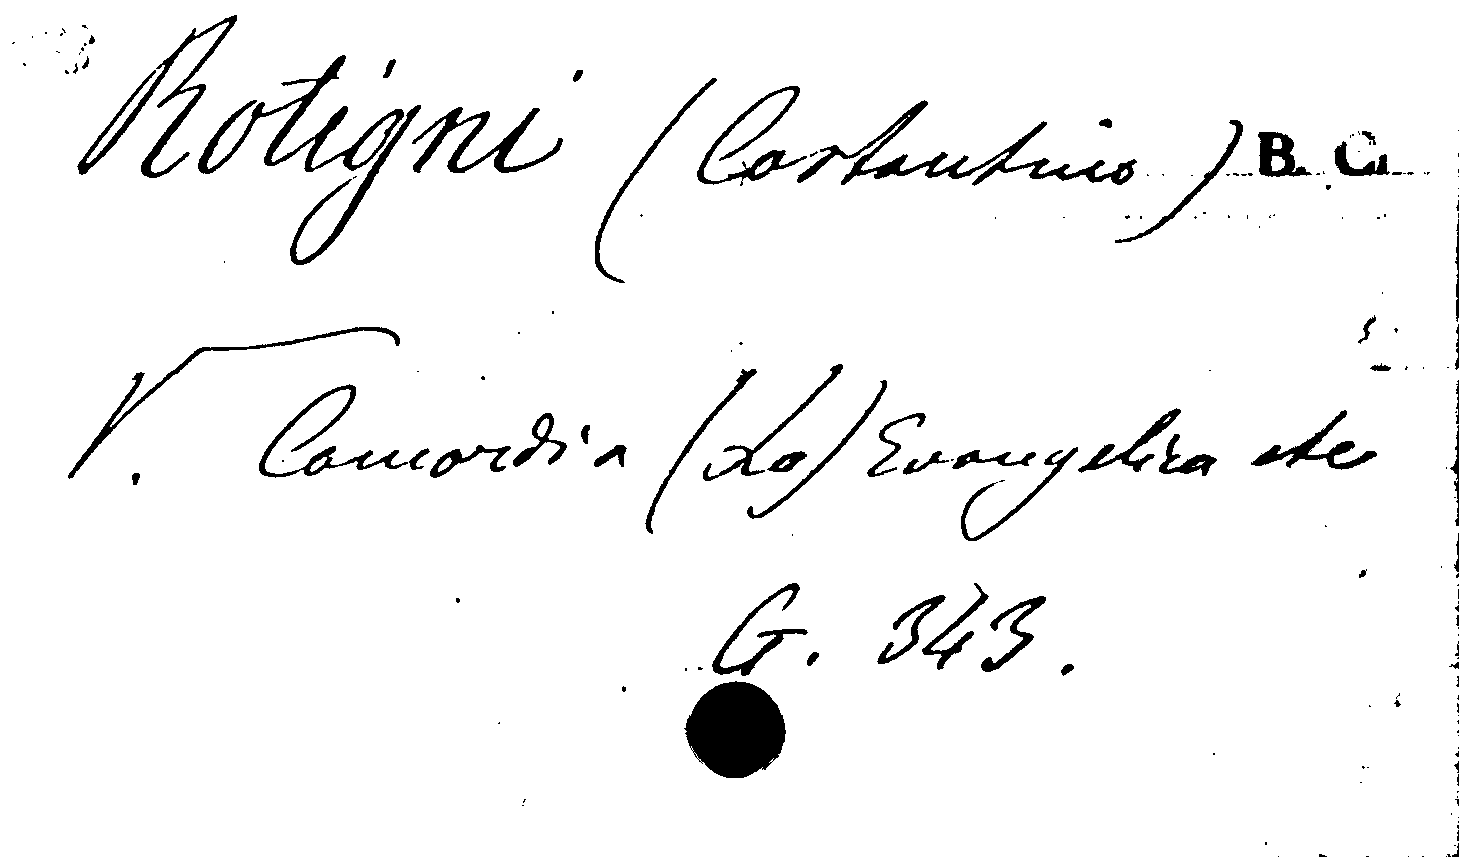 Rotigni (Costantino) B. C.
V. Concordia (La) Evangelica etc
G. 343.